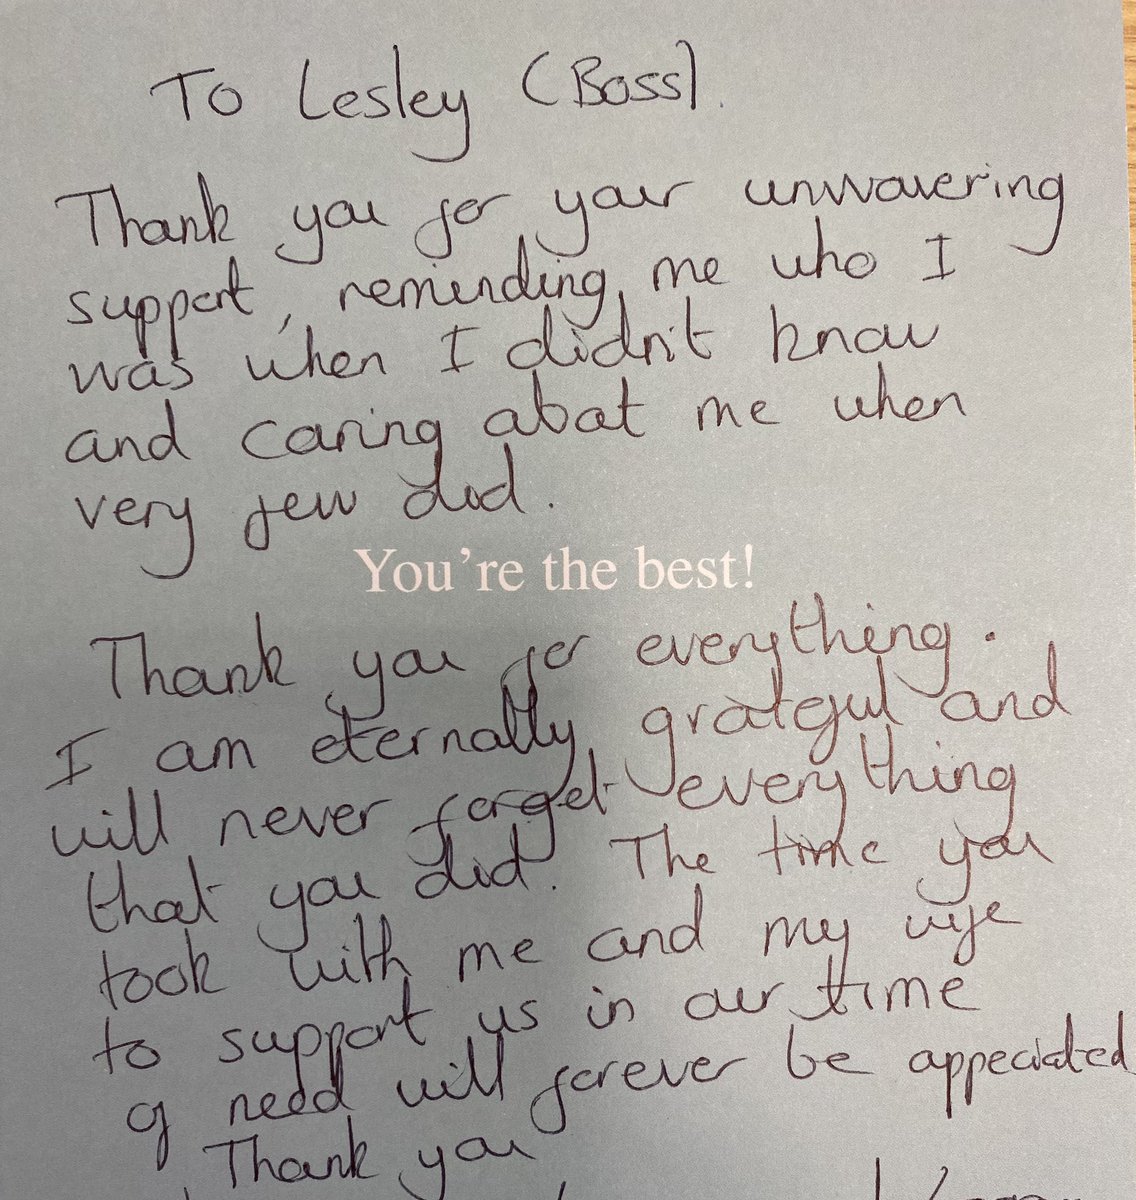 To Lesley (Boss).
Thank you for your unwavering
support, reminding me who I
was when I didn't know
and caring about me when
very few did.
You're the best!
Thank you for everything.
I am eternally grateful and
will never forget everything
that you did. The time you
took with me and my wife
to support us in our time
of need will forever be appeciated
Thank you